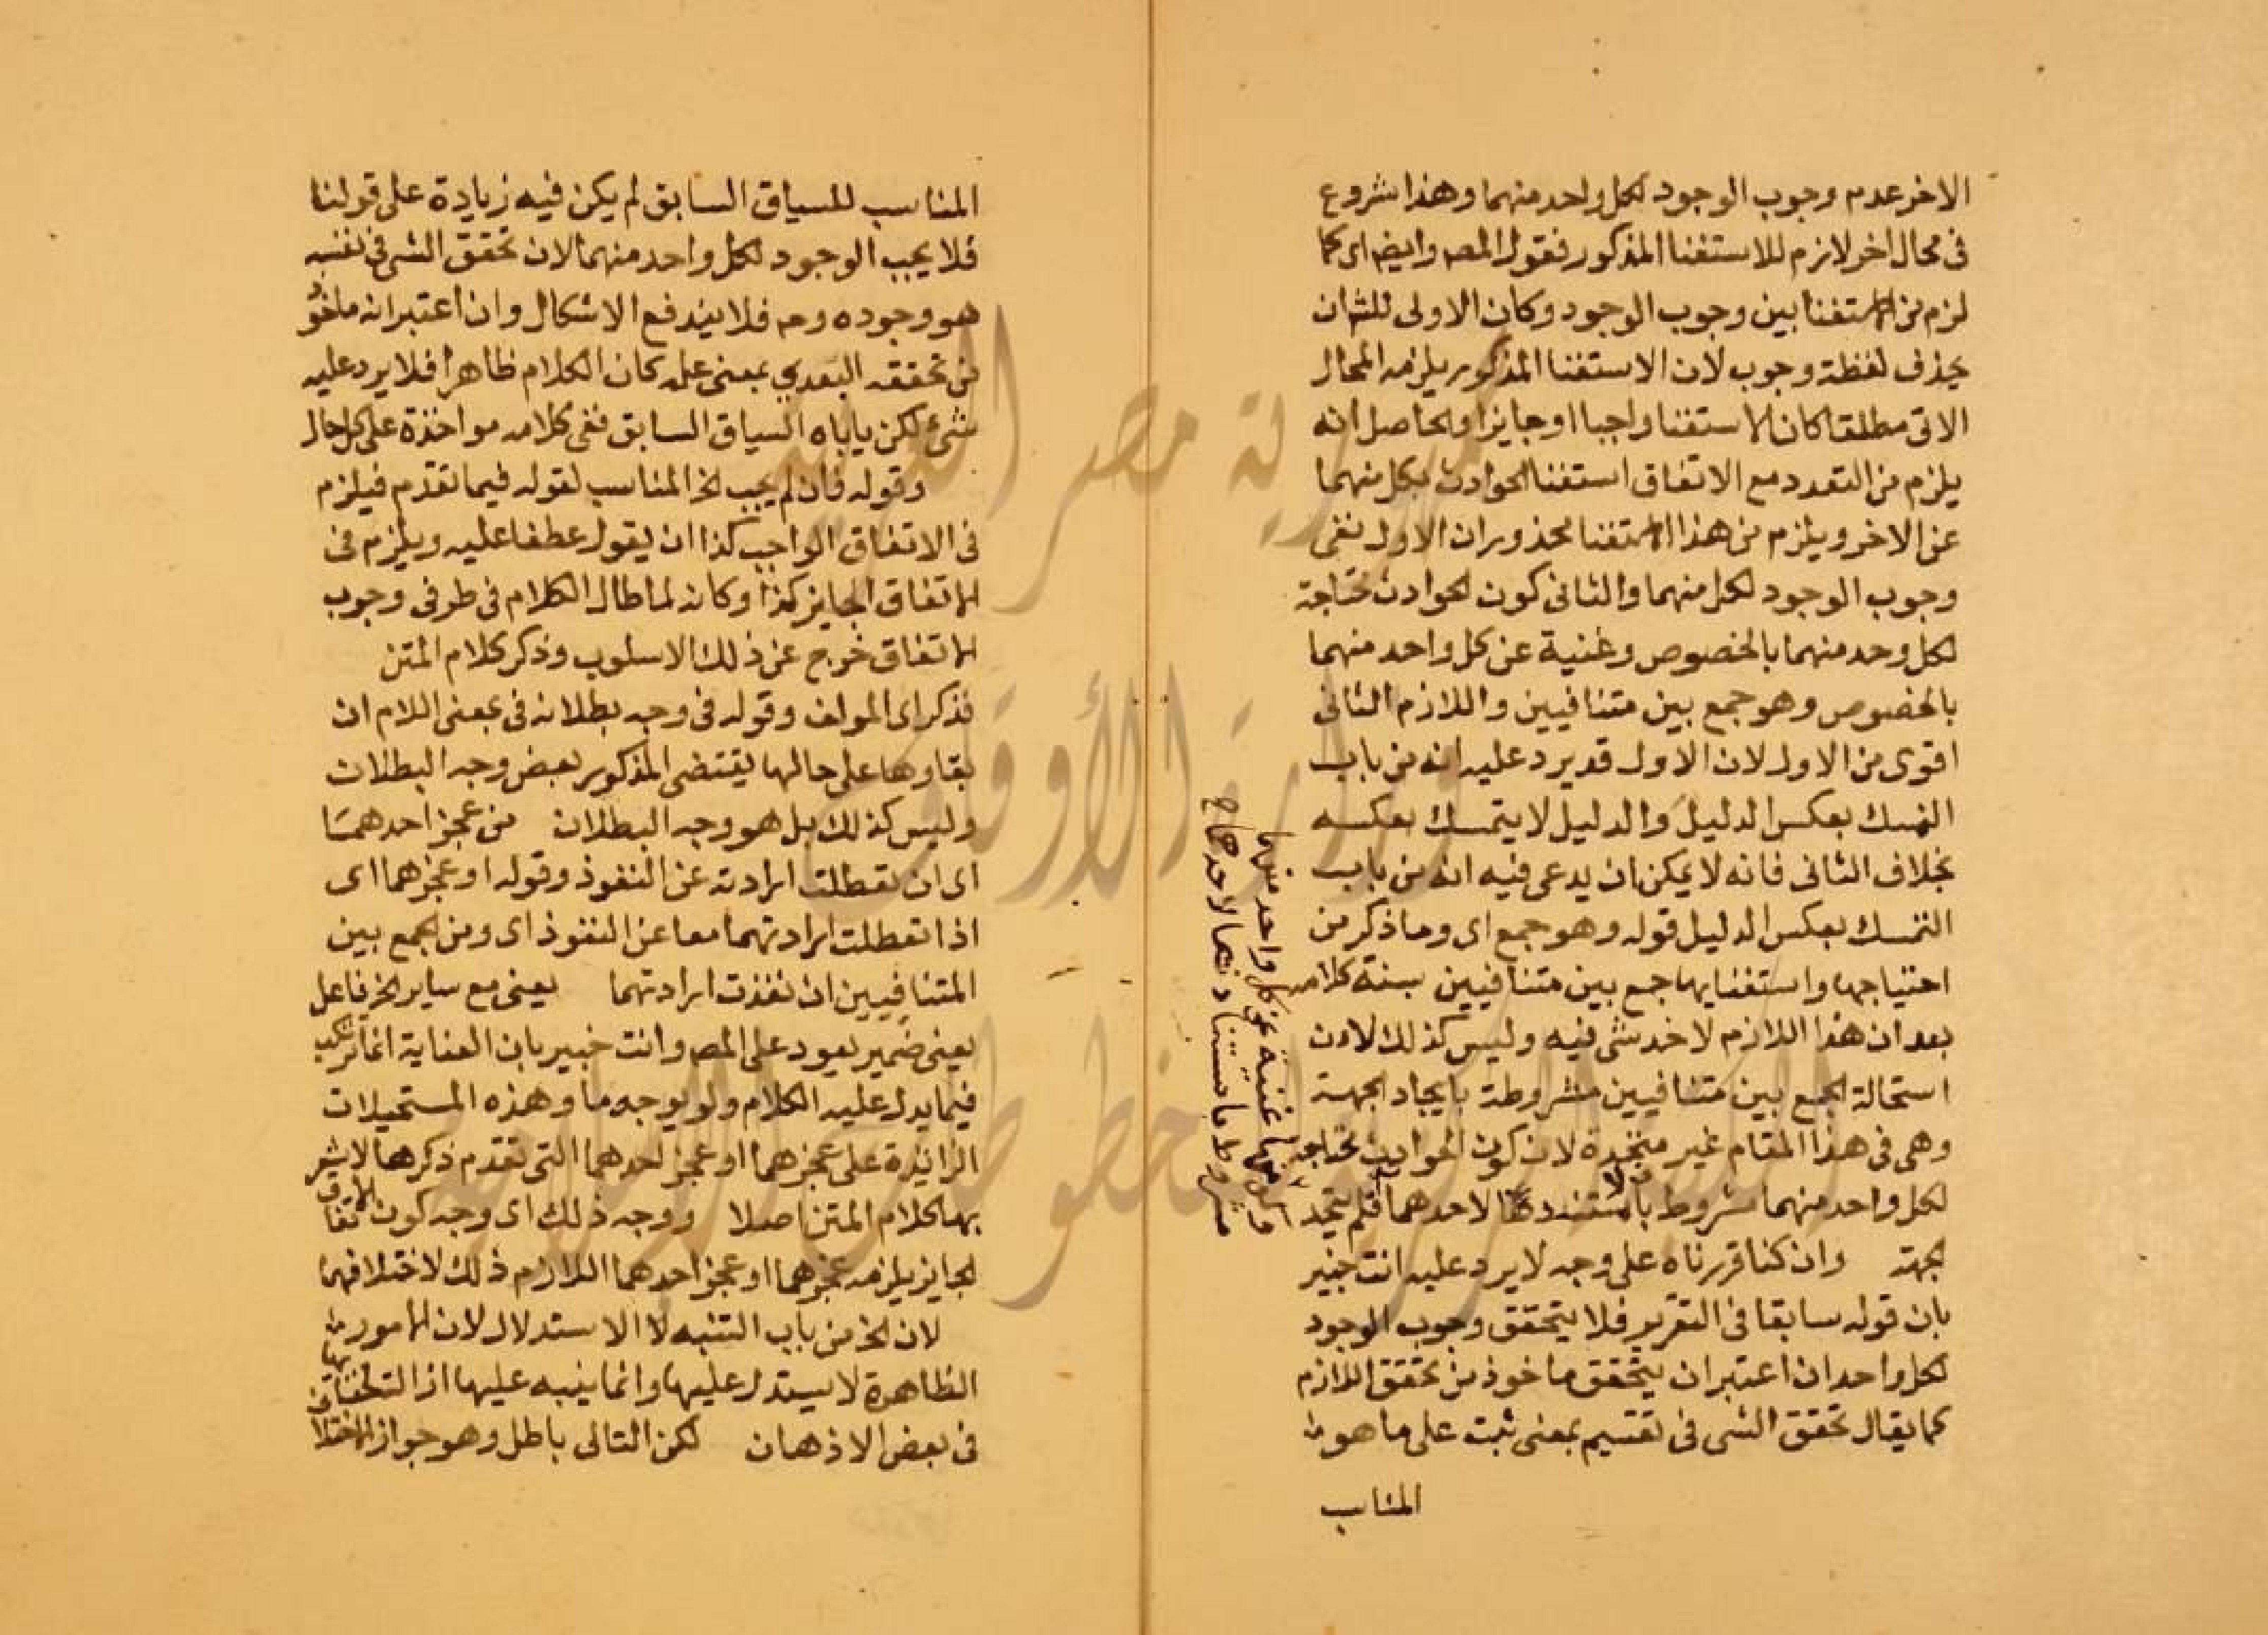 الاخر عدم وجوب الوجود لكل واحد منهما وهذا شروع
فى محال اخر لازم للاستغنا المذكور فقول المصـ وايضـ اى كما
لزم من الاستغنا بين وجوب الوجود وكان الاولى للشان
يحذف لفظة وجوب لان الاستغنا المذكور يلزمه المحال
الاتى مطلقا كان الاستغنا واجبا او جايزا والحاصل انه
يلزم من التعدد مع الاتفاق استغنا الحوادث بكل منهما
عن الاخر ويلزم من هذا الاستغنا محذوران الاول نفى
وجوب الوجود لكل منهما والثانى كون الحوادث محتاجة
لكل وحد منهما بالخصوص وغنية عن كل واحد منهما
بالخصوص وهو جمع بين متنافيين واللازم الثانى
اقوى من الاول لان الاول قد يرد عليه انه من باب
التمسك بعكس الدليل والدليل لا يتمسك بعكسه
بخلاف الثانى فانه لا يمكن ان يدعى فيه انه من باب
التمسك بعكس الدليل قوله وهو جمع اى وما ذكر من
احتياجها واستغنايها جمع بين متنافيين كلامه
بعد ان هذا اللازم لا خدشى فيه وليس كذلك لان
استحالة الجمع بين متنافيين مشروطة بايجاد الجهة
وهى فى هذا المقام غير متحدة لان كون الحوادث محتاجة
لكل واحد منهما مشروط لاحدهما فلم يتحد
الجهة وان كنا قررناه على وجه لا يرد عليه انت خبير
بان قوله سابقا فى التقرير فلا يتحقق وجوب الوجود
لكل واحد ان اعتبر ان يتحقق ماخوذ من تحقق اللازم
كما يقال تحقق الشى فى تقسيم بمعنى ثبت على ما هو
المناسب
كل واحد منهما
لاحدهما
المناسب للسياق السابق لم يكن فيه زيادة على قولنا
فلا يجب الوجود لكل واحد منهما لان تحقق الشى فى نفسه
هو وجوده وحـ فلا يندفع الاشكال وان اعتبر انه ماخوذ
من تحققه التعدي بمعنى علمه كان الكلام ظاهرا فلا يرد عليه
شئ لكن ياباه السياق السابق ففى كلامه مواخذة على كل حال
وقوله فان لم يجب الخ المناسب لقوله فيما تقدم فيلزم
فى الاتفاق الواجب كذا ان يقول عطفا عليه ويلزم فى
الاتفاق الجايز كذا وكانه لما طال الكلام فى طرفى وجوب
الاتفاق خرج عن ذلك الاسلوب وذكر كلام المتن
فذكر اى المولف وقوله فى وجه بطلانه فى بمعنى اللام ان
بقاوها على حالها يقتضى المذكور بعض وجه البطلان
وليس كذلك بل هو وجه البطلان من عجز احدهما
اى ان تعطلت ارادته عن النفوذ وقوله او عجزهما اى
اذا تعطلت ارادتهما معا عن النفوذ اى ومن الجمع بين
المتنافيين ان نفذت ارادتهما يعنى مع ساير الخ فاعل
يعنى ضمير يعود على المصـ وانت خبير بان العناية انما تركب
فيما يدل عليه الكلام ولو بوجه ما وهذه المستحيلات
الزائدة على عجزهما او عجز احدهما التى تقدم ذكرها لا يشعر
بها كلام المتن اصلا ووجه ذلك اى وجه كون الاتفاق
الجايز يلزمه عجزهما او عجز احدهما اللازم ذلك لاختلافهما
لان الخ من باب التنبه لا الاستدلال لان الامور
الظاهرة لا يستدل عليها وانما ينبه عليها ازالة
فى بعض الاذهان لكن التالى باطل وهو جواز الاختلاف